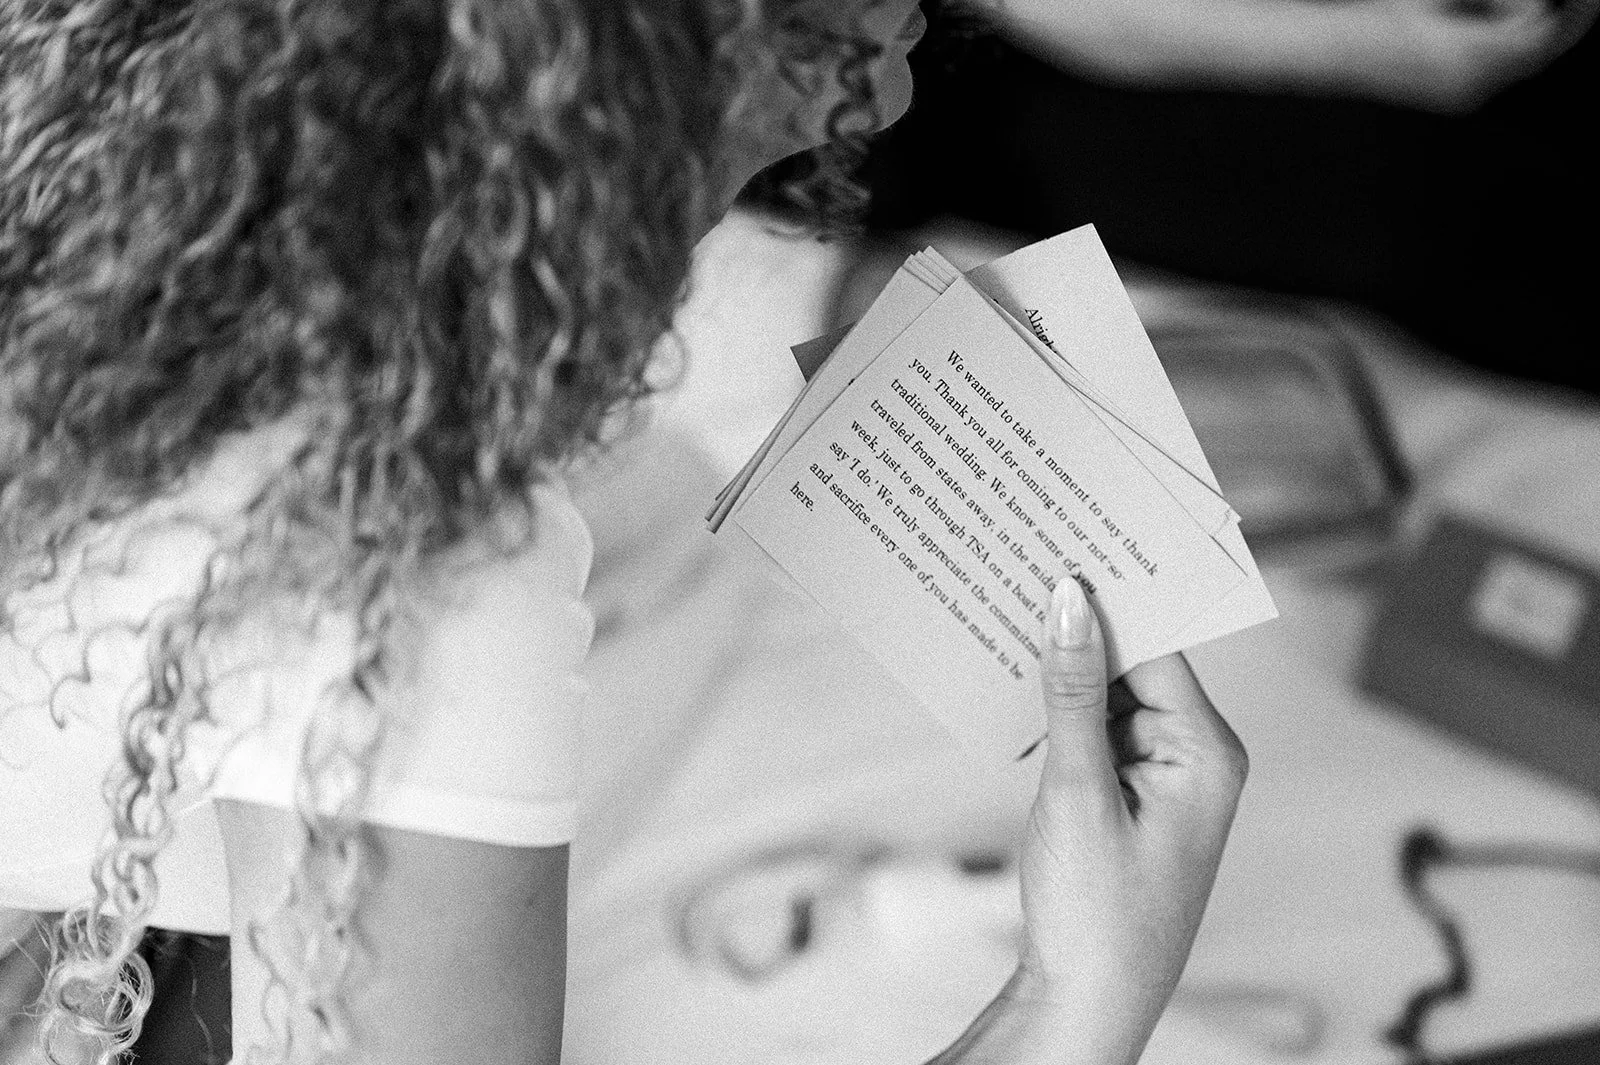 We wanted to take a moment to say thank
you. Thank you all for coming to our not-so-
traditional wedding. We know some of you
traveled from states away, in the
week, just to go through TSA on a boat
say 'I do.' We truly appreciate the
and sacrifice every one of you has made to be
here.